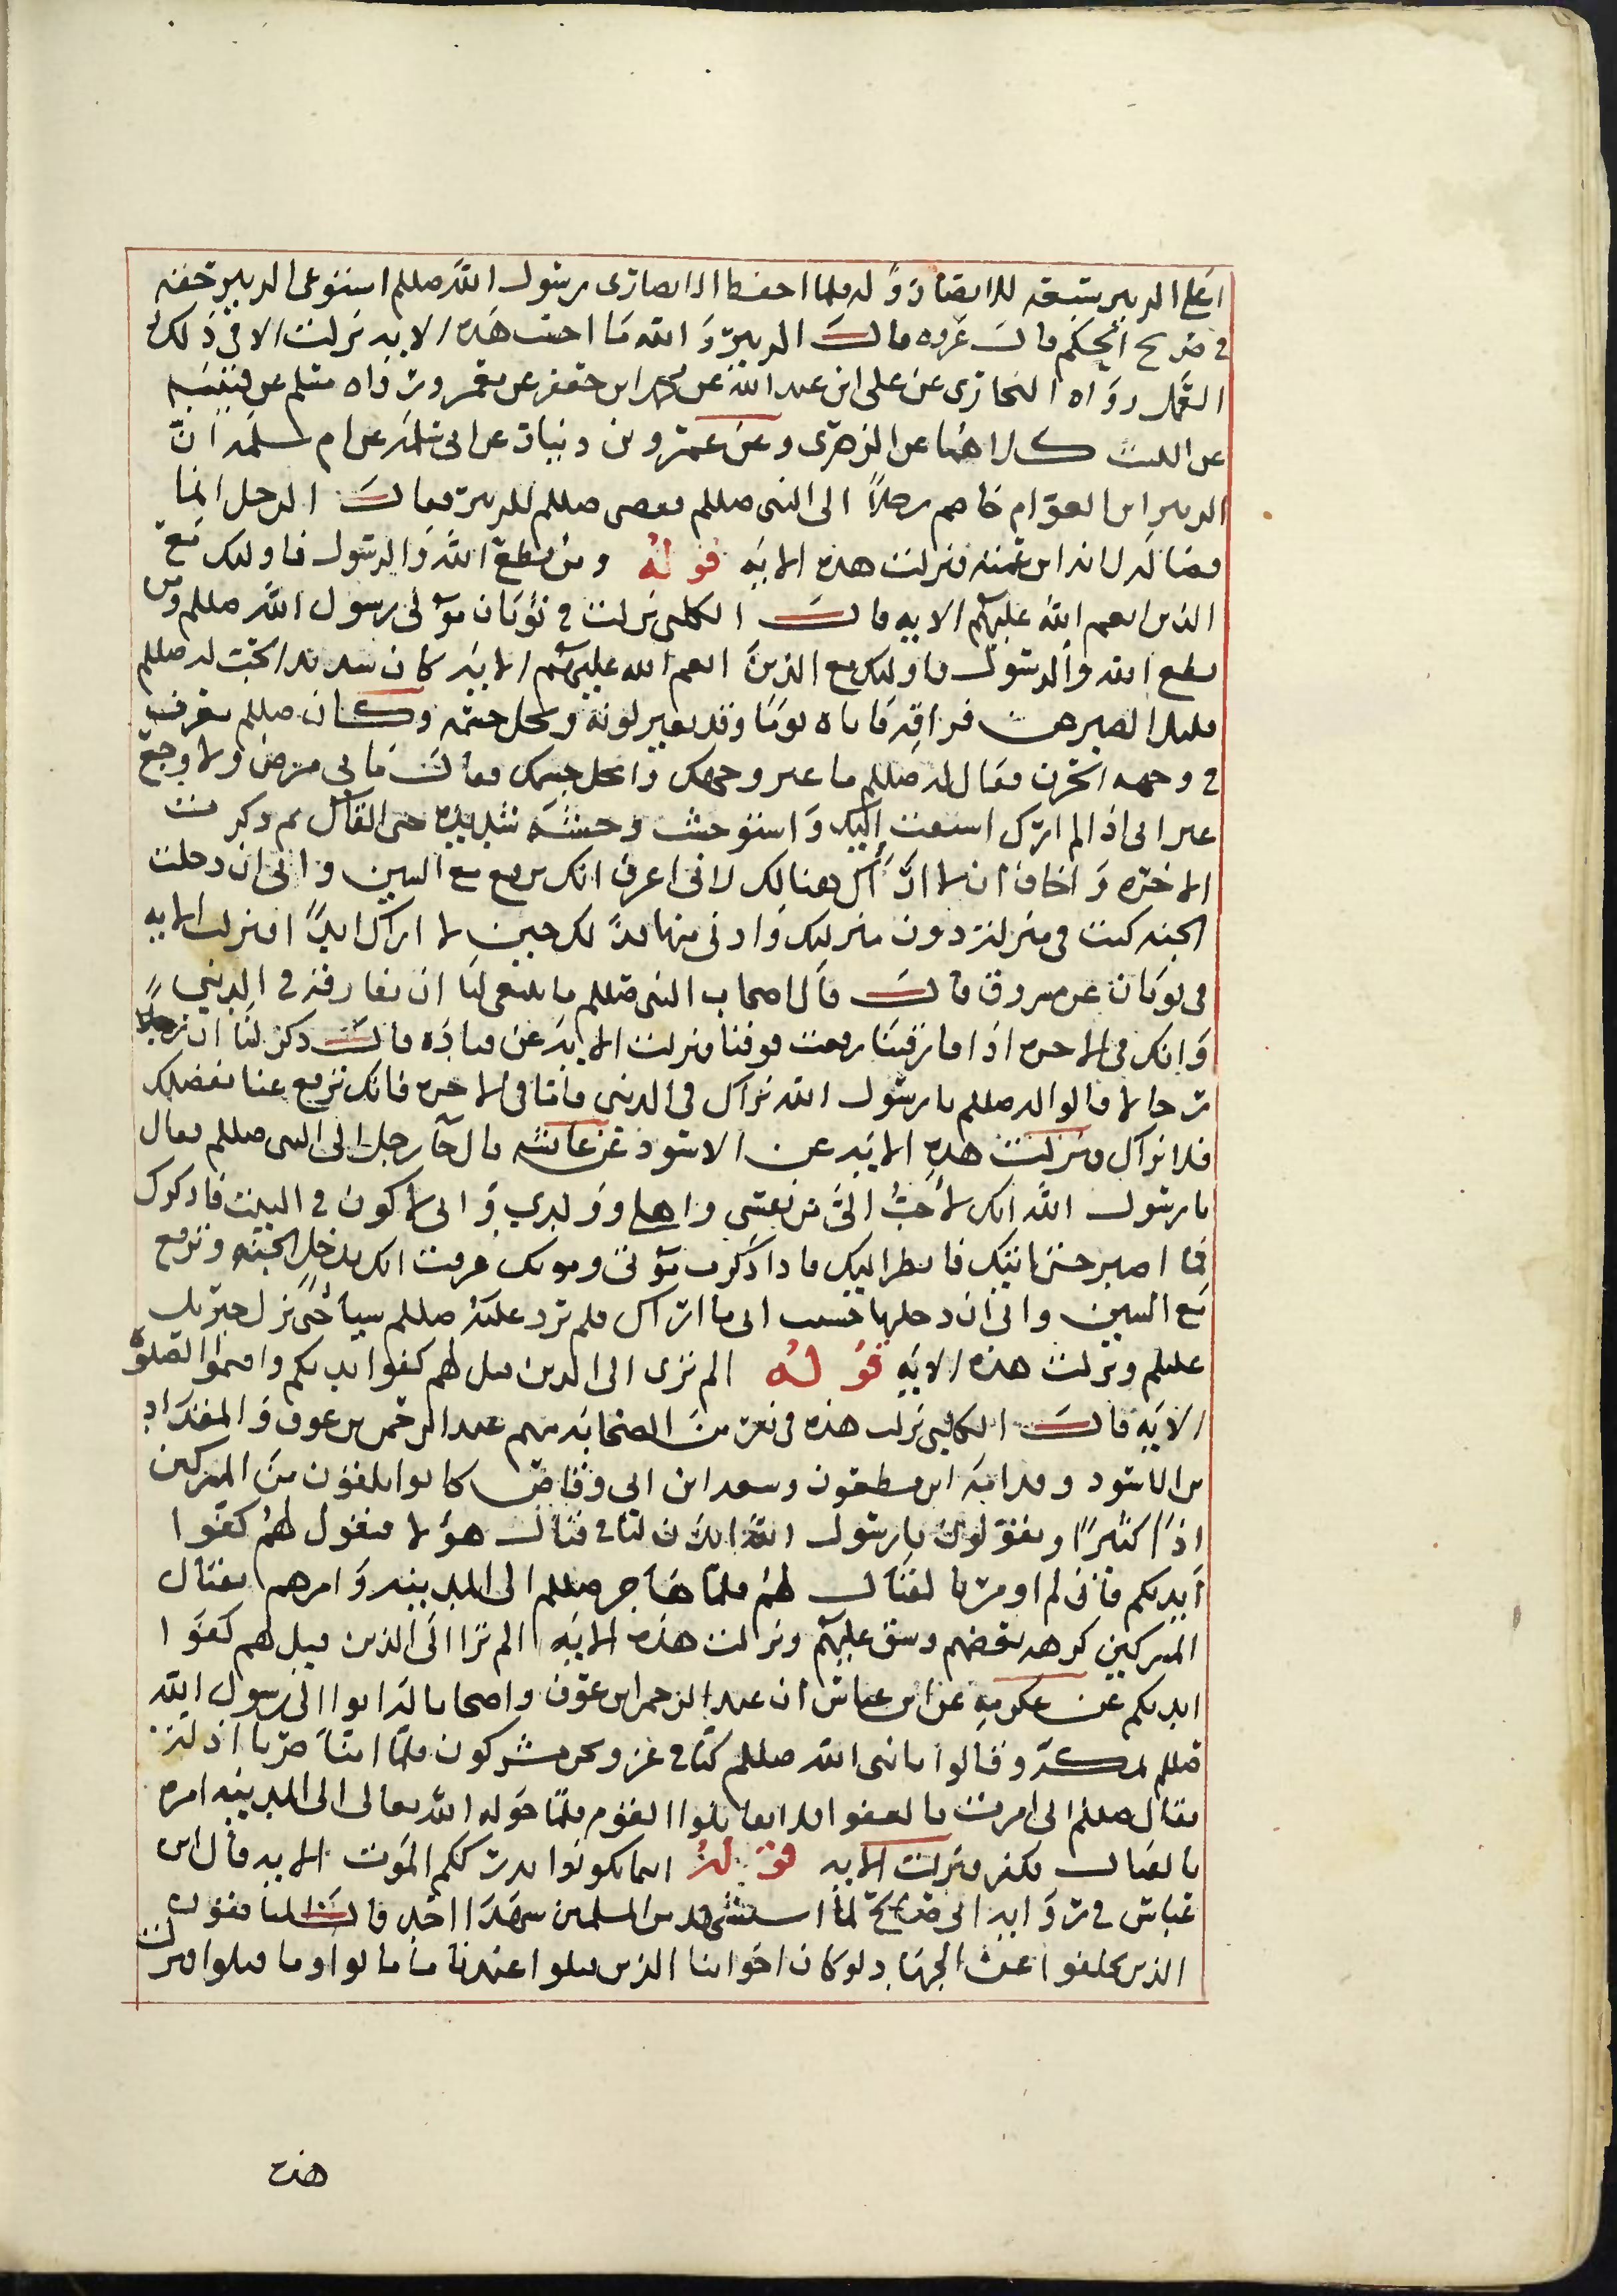 على الزبير بسعة للانصاري وله فلما احفظ الانصاري رسول الله صللم استوعى للزبير حقه
في صريح الحكم قال عروه قال الزبير والله ما احسب هذه الايه نزلت الا في ذلك
رواه البخاري عن علي ابن عبد الله عن محمد ابن جعفر عن معمر ورواه مسلم عن قتيبه
عن الليث كلاهما عن الزهري وعن عمرو بن دينار عن ابي سلمه عن ام سلمه ان
الزبير ابن العوام خاصم رجلاً الى النبي صللم فقضى صللم للزبير فقال الرجل انما
قضا له لانه ابن عمته فنزلت هذه الايه قوله ومن يطع الله والرسول فاوليك مع
الذين انعم الله عليهم الايه قال الكلبي نزلت في ثوبان مولى رسول الله صللم ومن
يطع الله والرسول فاوليك مع الذين انعم الله عليهم الايه كان شديد الحب له صللم
قليل الصبر عن فراقه فاتاه يوما وقد تغير لونه ونحل جسمه وكان صللم يعرف
في وجهه الحزن فقال له صللم ما غير وجهك وانحل جسمك فقال ما بي مرض ولا وجع
غير اني اذا لم ارك اشتقت اليك واستوحشت وحشه شديده حتى القاك ثم ذكرت
الاخره واخاف ان لا اراك هنالك لاني اعرف انك ترفع مع النبيين واني ان دخلت
الجنه كنت في منزله دون منزلتك وان لم ادخل فذاك حين لا اراك ابداً فنزلت الايه
في ثوبان عن مسروق قال قال اصحاب النبي صللم ما ينبغي لنا ان نفارقك في الدني
وانك في الاخره اذا فارقتنا رفعت فوقنا فنزلت الايه عن قتاده قال ذكر لنا ان رجالا
رجالا قالوا له صللم يا رسول الله نراك في الدني فاما في الاخره فانك ترفع عنا بفضلك
فلا نراك فنزلت هذه الايه عن الاسود عن عائشه قال جآ رجل الى النبي صللم فقال
يا رسول الله انك لاحب اليّ من نفسي واهلي وولدي واني لاكون في البيت فاذكرك
فما اصبر حتى اتيك فانظر اليك فاذا ذكرت موتي وموتك عرفت انك تدخل الجنه وترفع
مع النبيين واني ان دخلتها خشيت اني ما اراك فلم يرد عليه صللم شيا حتى نزل جبريل
عليلم ونزلت هذه الايه قوله الم ترى الى الذين قيل لهم كفوا ايديكم واقيموا الصلوة
الايه قال الكلبي نزلت هذه في نفر من الصحابه منهم عبد الرحمن بن عوف والمقداد
بن الاسود وقدامه ابن مظعون وسعد ابن ابي وقاص كانوا يلقون من المشركين
اذاً كثيراً ويقولون يا رسول الله ائذن لنا في قتال هؤلا فيقول لهم كفوا
ايديكم فاني لم اومر بالقتال لهم فلما هاجر صللم الى المدينه وامرهم بقتال
المشركين كرهه بعضهم وشق عليهم ونزلت هذه الايه الم ترا الى الذين قيل لهم كفوا
ايديكم عن عكرمه عن ابن عباس ان عبد الرحمن ابن عوف واصحابا له اتوا الى رسول الله
صللم بمكه وقالوا يا نبي الله صللم كنا في عز ونحن مشركون فلما امنا صرنا اذله
فقال صللم اني امرت بالعفو فلا تقاتلوا القوم فلما حوله الله تعالى الى المدينه امره
بالقتال فكفوا فنزلت الايه قوله اينما تكونوا يدرككم الموت الايه قال ابن
عباس في روايه ابي صالح لما استشهد من المسلمين من استشهد يوم احد قال المنافقون
الذين تخلفوا عن الجهاد لو كان اخواننا الذين قتلوا عندنا ما ماتوا وما قتلوا فنزلت
هذه